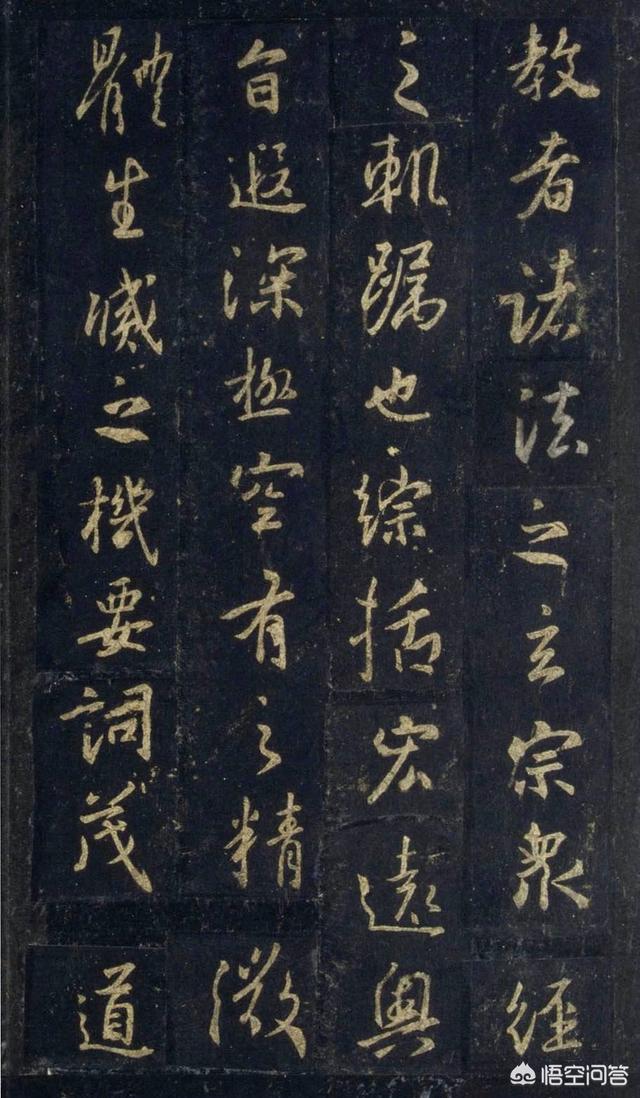 教者諸法之玄宗衆經
之軌躅也綜括宏遠奧
旨遐深極空有之精微
體生滅之機要詞茂道
悟空问答